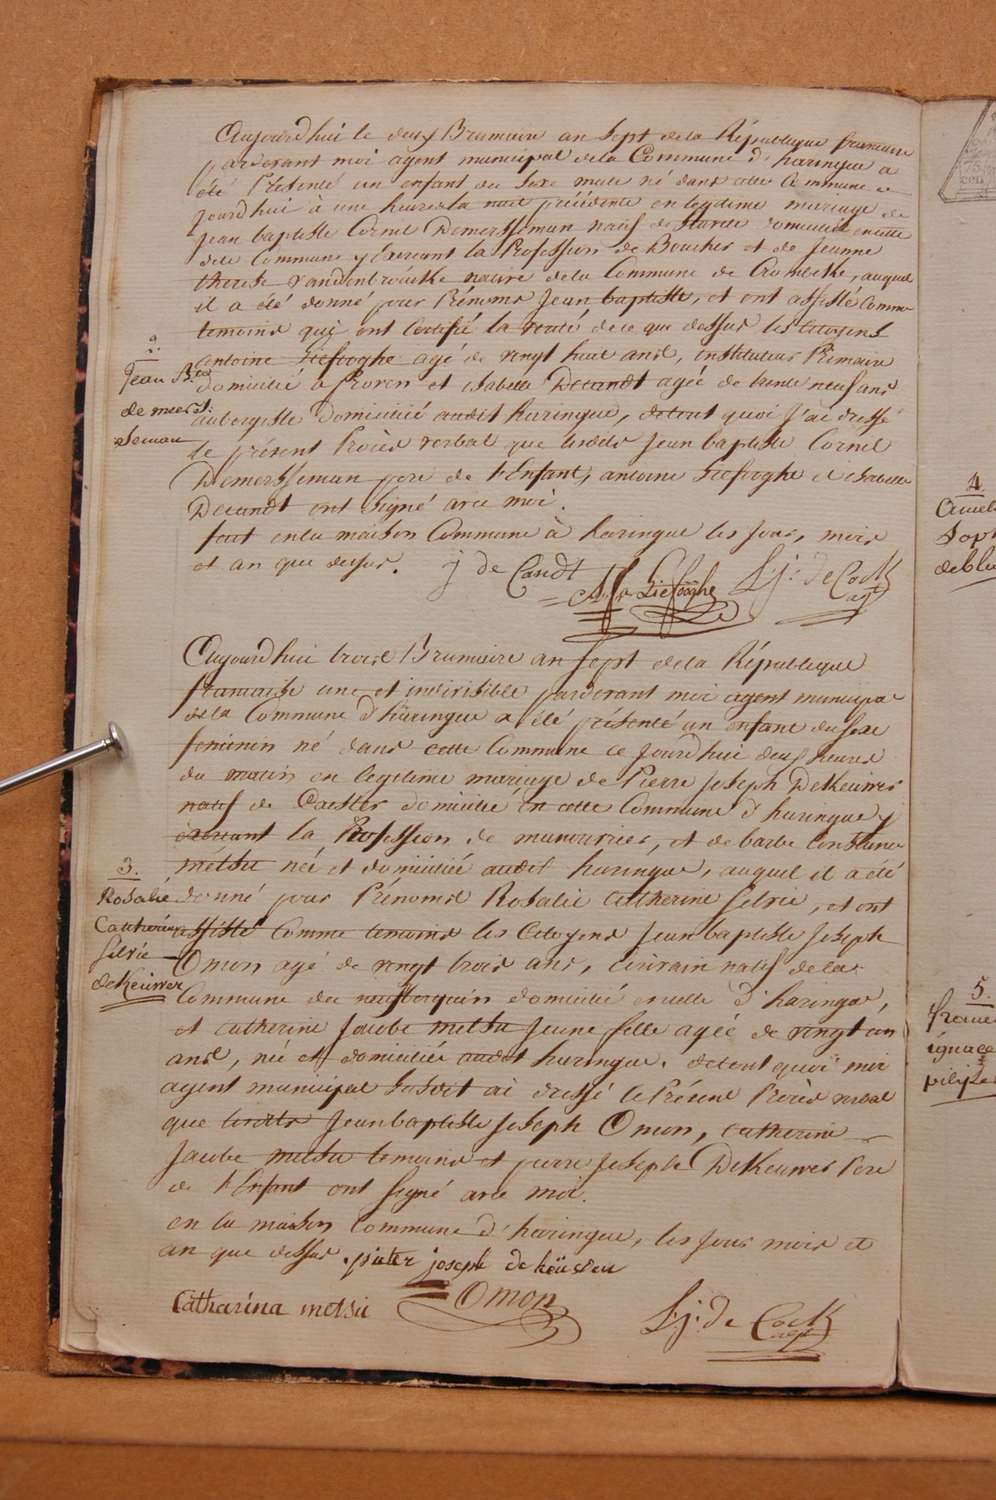 Aujourd'hui le deux Brumaire an Sept de la République francaise
pardevant moi agent municipal de la Commune d'haringue a
été Présenté un enfant du Sexe male né dans cette Commune ce
jourd'hui à une heure la nuit précédente en legitime mariage de
Jean baptiste Cornil Demersseman natif de Stavele domicilié en cette
dite Commune y Exercant la Profession de Boucher et de Jeanne
therese Vandenbrouck native de la Commune de Crombeke, auquel
il a été donné pour Prénoms Jean baptiste, et ont assisté Comme
temoins qui ont Certifié la verité de ce que dessus les Citoyens
Antoine Liefooghe agé de vingt huit ans, instituteur Primaire
domicilié à Proven et isabelle Decandt agée de trente neuf ans
aubergiste domiciliée audit haringue, de tout quoi j'ai dressé
le présent Procès verbal que lesdits Jean baptiste Cornil
Demersseman pere de l'Enfant, antoine Liefooghe et isabelle
Decandt ont Signé avec moi.
fait en la maison Commune à haringue les jour, mois
et an que dessus. j de Candt
A: Liefooghe S:j: de Cock
agt
2.
Jean B.te
de mers
seman
Aujourd'hui trois Brumaire an Sept de la République
francaise une et indivisible pardevant moi agent municipal
de la Commune d'haringue a été présenté un enfant du sexe
feminin né dans cette Commune ce jourd'hui deux heures
du matin en legitime mariage de Pierre Joseph DeKeuwer
natif de Caester domicilié en cette Commune d'haringue y
exercant la Profession de manouvrier, et de barbe Constance
metsu née et domiciliée audit haringue, auquel il a été
donné pour Prénoms Rosalie Catherine Silvie, et ont
assisté Comme temoins les Citoyens Jean baptiste Joseph
Omon agé de vingt trois ans, écrivain natif de la
Commune du neufberquin domicilié en celle d'haringue,
et catherine Jacobe metsu Jeune fille agée de vingt un
ans, née et domiciliée audit haringue. de tout quoi moi
agent municipal Susdit ai dressé le Présent Procès verbal
que lesdits Jean baptiste Joseph Omon, catherine
Jacobe metsu temoins et pierre Joseph DeKeuwer Pere
de l'Enfant ont signé avec moi.
en la maison Commune d'haringue, les jour mois et
an que dessus. pieter joseph de
Catharina metsu Omon S:j: de Cock
agt
3.
Rosalie
Catherine
Silvie
deKeuwer
4
Sop
5.
ignace